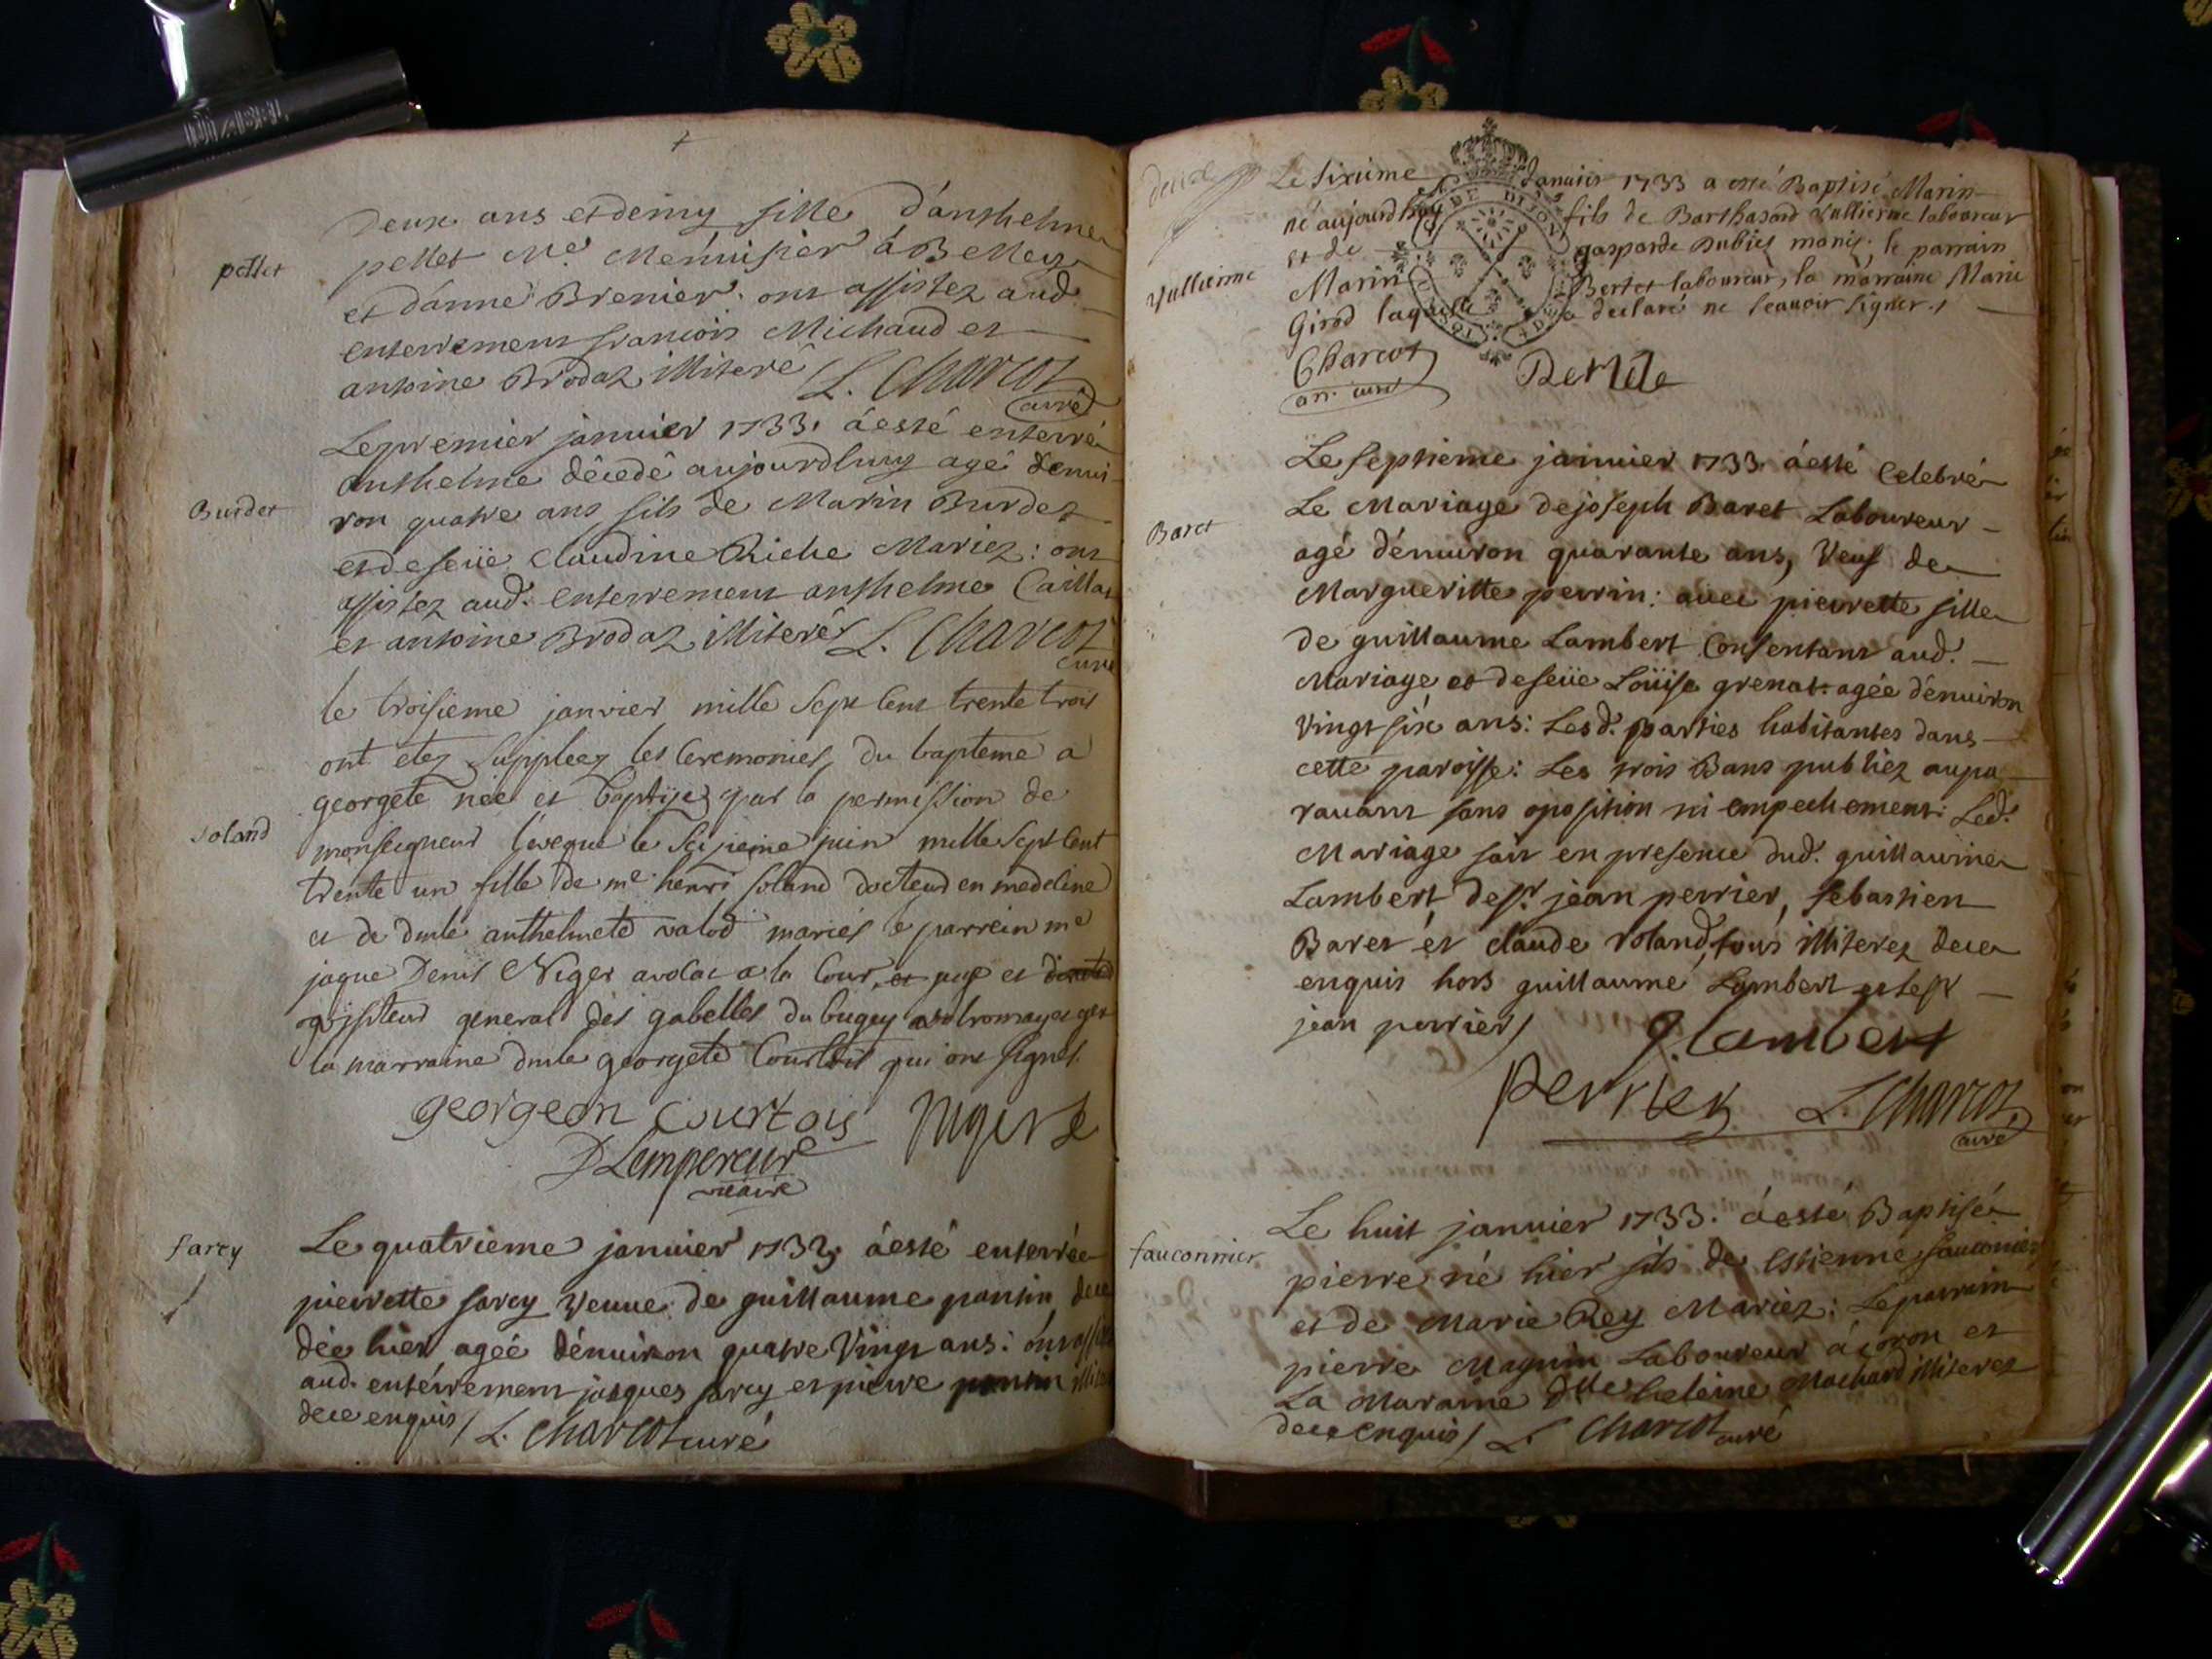 Deux ans et demy fille d'anthelme
pellet
pellet Me. Menuisier à Belley
et d'anne Brenier. ont assistez aud.
enterrement francois Michaud et
antoine Brodaz illiteré L. Charcot
curé
Le premier januier 1733. à esté enterré
anthelme décedé aujourdhuy agé denui
Burdet
ron quatre ans fils de Marin Burdet
et defeüe Claudine Riche Mariez: ont
assistez aud. enterrement anthelme Caillat
et antoine Brodaz illiteré L. Charcot
curé
le troisieme janvier mille sept cent trente trois
ont etez suppleez les Ceremonies du bapteme a
georgete née et baptizeé par la permission de
soland
monseigneur l'eveque le seizieme juin mille sept cent
trente un fille de me henri soland docteur en medecine
et de dmle anthelmete valod mariés le parrein me
jaque Denis Niger avocat a la Cour et
general des gabelles du bugey valromay et gex
la marraine dmle georgete Courtois qui ont signés.
georgeon Courtois Niger
D Lempereur
vicaire
sarcy
Le quatrieme januier 1733 àesté enterrée
pierrette sarcy veuue de guillaume pantin dece
dée hier agée dénuiron quatre Vingt ans: ont assis
aud. entérrement jacques sarcy et pierre pantin illite
dece enquis / L. Charcot curé
deuxe
Le sixieme Januier 1733 a esté Baptisé Marin
né aujourdhuy fils de Barthasard Vullierme laboureur
et de gasparde Dubiez mariés. le parrain
Vullierme
Marin Bertet laboureur, la marraine Marie
Girod laquelle a declaré ne scauoir signer. /
Charcot
arc. curé
Le septieme januier 1733. àesté Celebré
Le Mariage de joseph Baret Laboureur
Baret
agé dénuiron quarante ans, Veuf de
Marguerite perrin: auec pierrette fille
de guillaume Lambert Consentant aud.
Mariage et defeüe Loüise grenat. agée dénuiron
Vingt six ans: Lesd. parties habitantes dans
cette paroisse: Les trois Bans publiez aupa
rauant sans oposition ni empechement: Led.
Mariage fait en presence dud. guillaume
Lambert, desr. jean perrier, sebastien
Baret et claude roland, tous illiterez dece
enquis hors guillaume Lambert et lesr
jean perrier /
g. lambert
Perrier L. Charcot
curé
Le huit januier 1733. àesté Baptisé
fauconnier
pierre né hier fils de Estienne fauconier
et de Marie Rey Mariez: Leparrain
pierre Magnin Laboureur à coron et
La Maraine dlle heleine Machard illiterez
dece enquis / L. Charcot curé